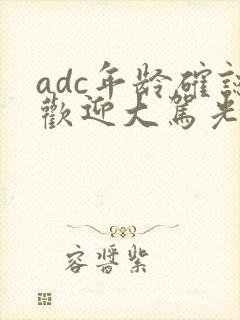 adc年龄確認
歡迎大駕光
容晋紫